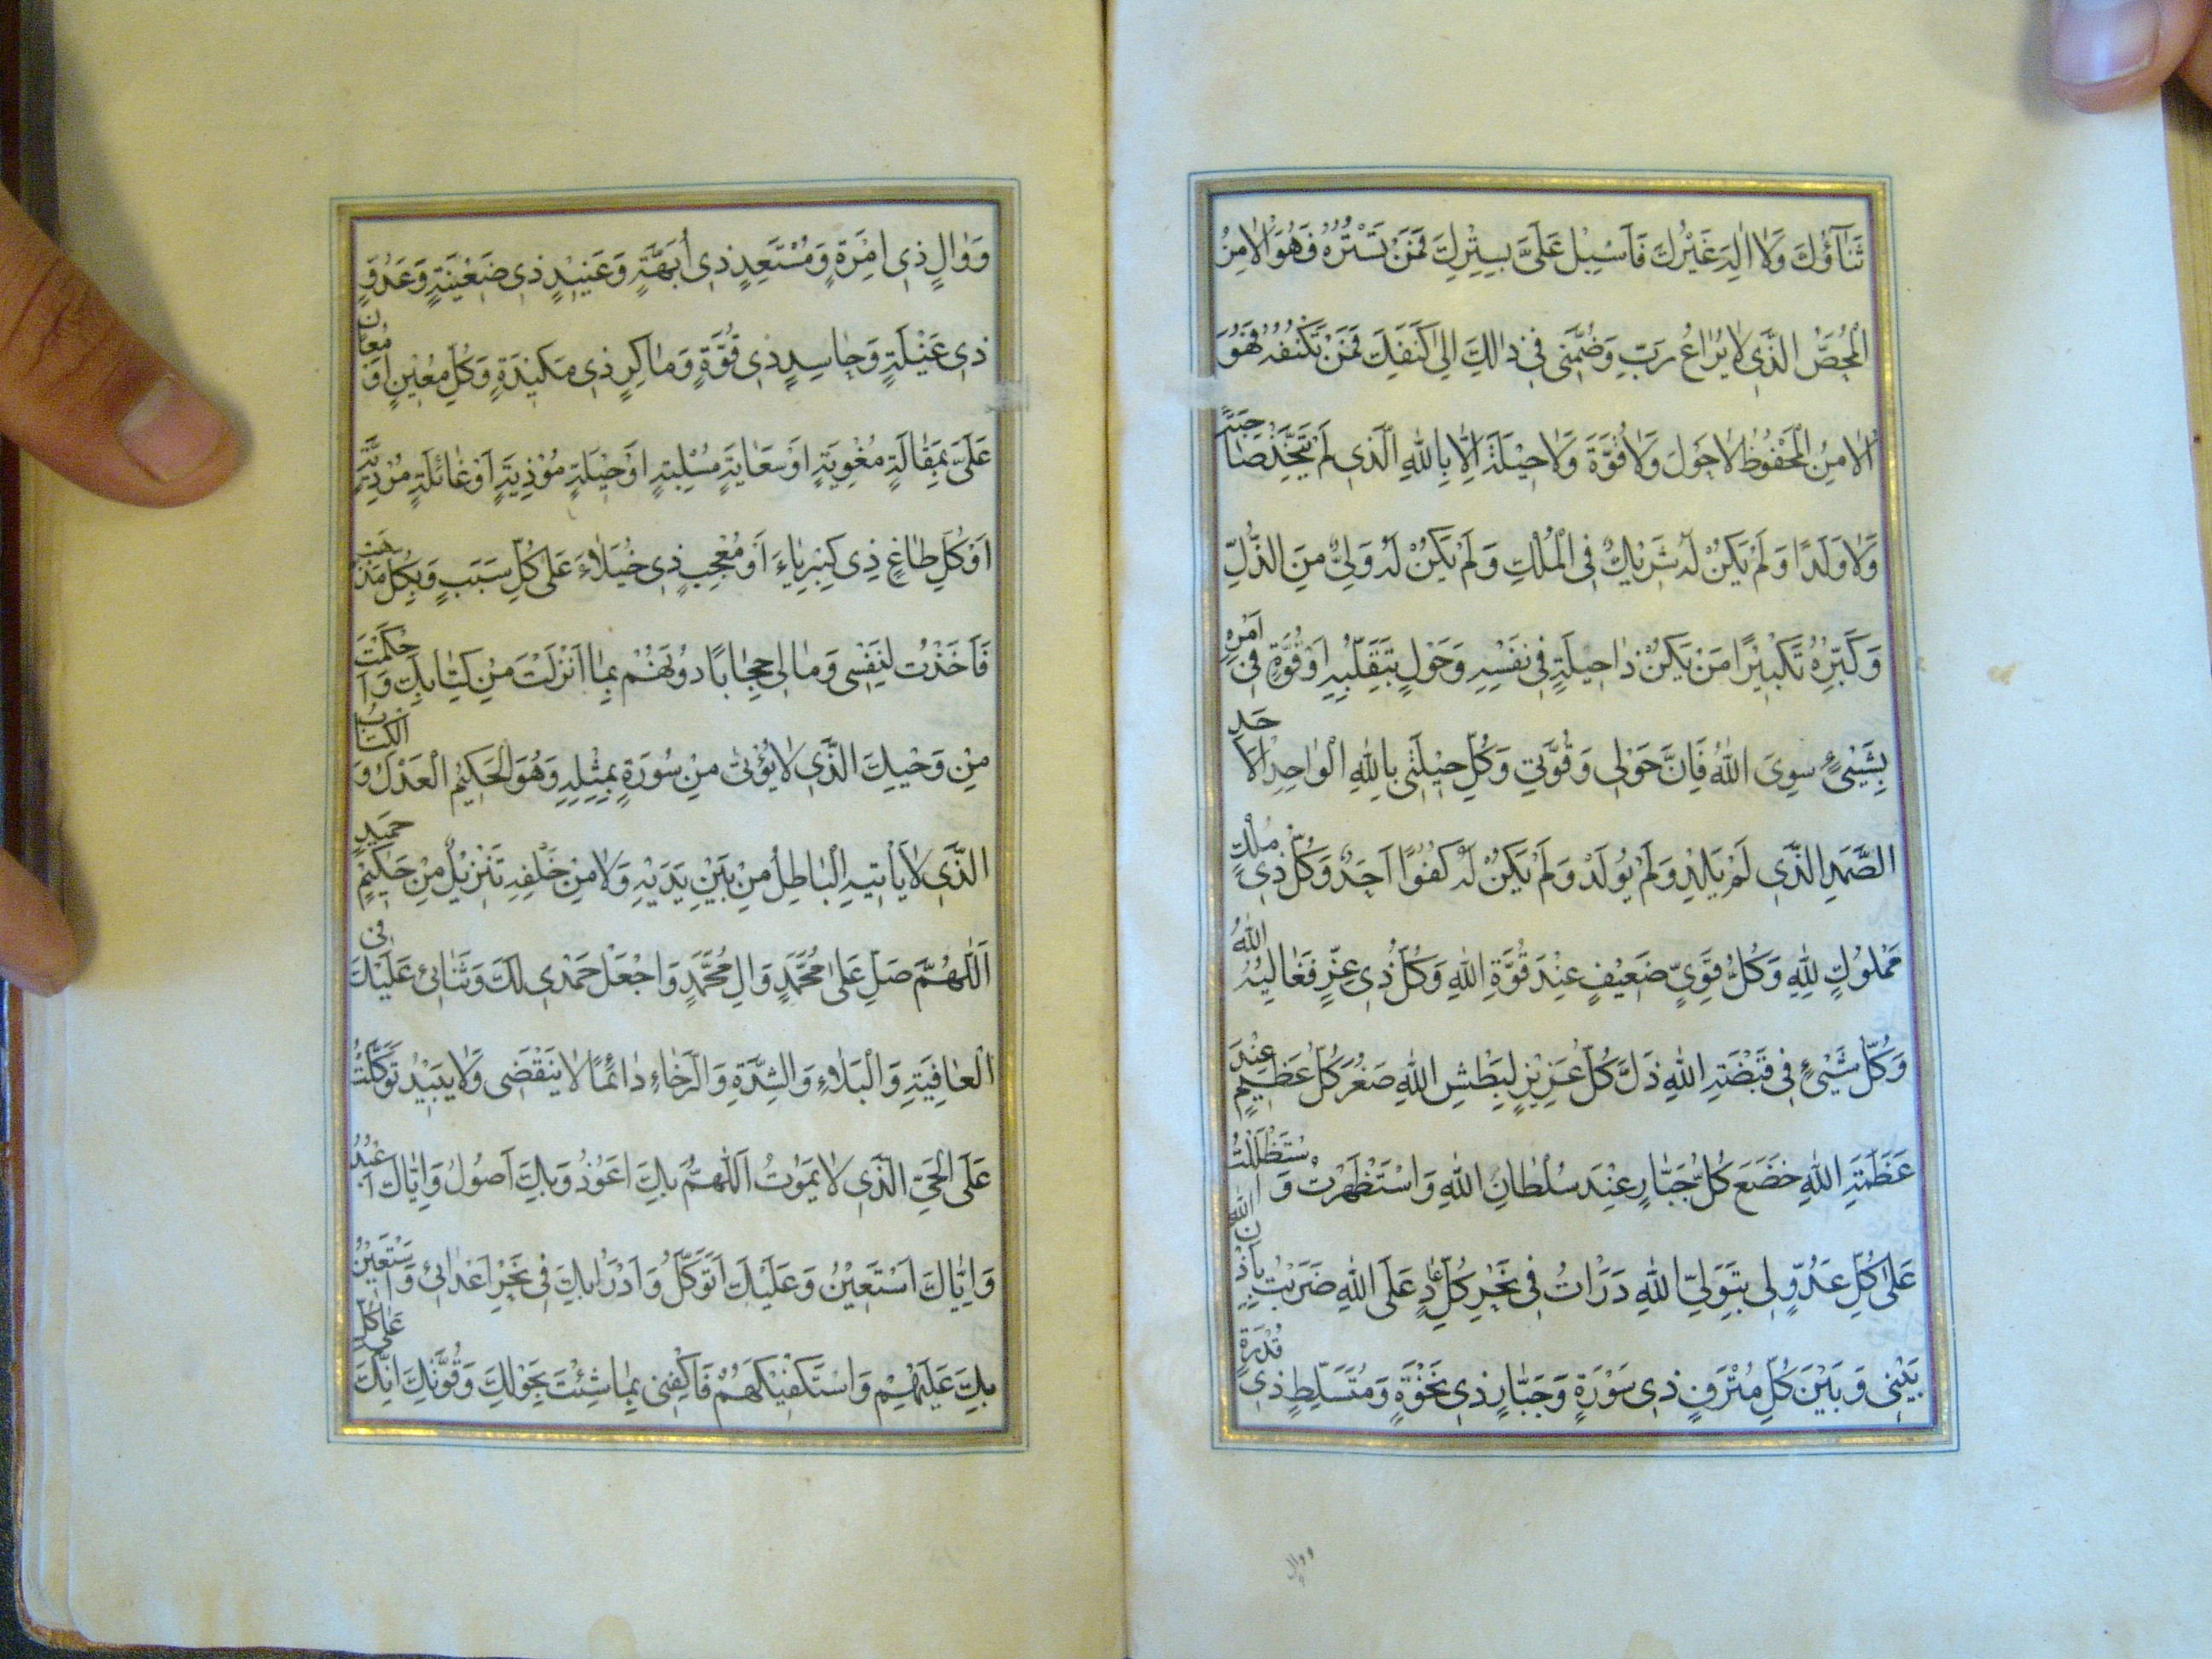 ثَنَآؤُكَ وَلَا اِلٰهَ غَيْرُكَ فَاَسْبِلْ عَلَىَّ بِسِتْرِكَ فَمَنْ تَسْتُرُهُ فَهُوَ الْاٰمِنُ
الْمُحَصَّنُ الَّذِى لَا يُرَاعُ رَبِّ وَضُمَّنِى فِى ذٰلِكَ اِلىٰ كَنَفِكَ فَمَنْ تَكْنُفُهُ فَهُوَ
الْاٰمِنُ الْمَحْفُوظُ لَا حَوْلَ وَلَا قُوَّةَ وَلَا حِيْلَةَ اِلَّا بِاللهِ الَّذِى لَمْ يَتَّخِذْ صَاحِبَةً
وَلَا وَلَدًا وَلَمْ يَكُنْ لَهُ شَرِيْكٌ فِى الْمُلْكِ وَلَمْ يَكُنْ لَهُ وَلِىٌّ مِنَ الذُّلِّ
وَكَبِّرْهُ تَكْبِيْرًا مَنْ يَكُنْ ذَا حِيلَةٍ فِى نَفْسِهِ وَحَوْلٍ بِتَقَلُّبِهِ اَوْ قُوَّةٍ فِى اَمْرِهِ
بِشَيْئٍ سِوَى اللهِ فَاِنَّ حَوْلِى وَقُوَّتِى وَكُلَّ حِيْلَتِى بِاللهِ الْوَاحِدِ الْاَحَدِ
الصَّمَدِ الَّذِى لَمْ يَلِدْ وَلَمْ يُولَدْ وَلَمْ يَكُنْ لَهُ كُفُوًا اَحَدٌ وَكُلُّ ذِى مُلْكٍ
مَمْلُوكٍ لِلّٰهِ وَكُلُّ قَوِىٍّ ضَعِيْفٍ عِنْدَ قُوَّةِ اللهِ وَكُلُّ ذِى عِزٍّ فَغَالِبُهُ اللهُ
وَكُلُّ شَيْئٍ فِى قَبْضَةِ اللهِ ذَلَّ كُلُّ عَزِيْزٍ لِبَطْشِ اللهِ صَغُرَ كُلُّ عَظِيْمٍ عِنْدَ
عَظَمَةِ اللهِ خَضَعَ كُلُّ جَبَّارٍ عِنْدَ سُلْطَانِ اللهِ وَاسْتَظْهَرْتُ وَاسْتَظَلْتُ
عَلىٰ كُلِّ عَدُوٍّ لِى بِتَوَلِّى اللهِ دَرَاْتُ فِى نَحْرِ كُلِّ عَادٍ عَلَى اللهِ ضَرَبْتُ بِاِذْنِ اللهِ
بَيْنِى وَبَيْنَ كُلِّ مُتْرَفٍ ذِى سَوْرَةٍ وَجَبَّارٍ ذِى نَخْوَةٍ وَمُتَسَلِّطٍ ذِى قُدْرَةٍ
ووال
وَوَالٍ ذِى اِمْرَةٍ وَمُسْتَعِدٍّ ذِى اُبَّهَةٍ وَعَنِيْدٍ ذِى ضَغِيْنَةٍ وَعَدُوٍّ
ذِى غَيْلَةٍ وَحَاسِدٍ ذِى قُوَّةٍ وَمَاكِرٍ ذِى مَكِيْدَةٍ وَكُلِّ مُعِيْنٍ اَوْ مُعَانٍ
عَلَىَّ بِمَقَالَةٍ مُغْوِيَةٍ اَوْ سِعَايَةٍ مُسْلِبَةٍ اَوْ حِيْلَةٍ مُوْذِيَةٍ اَوْ غَائِلَةٍ مُرْدِيَةٍ
اَوْ كُلِّ طَاغٍ ذِى كِبْرِيَاءَ اَوْ مُعْجِبٍ ذِى خُيَلَاءَ عَلىٰ كُلِّ سَبَبٍ وَبِكُلِّ مَذْهَبٍ
فَاَخَذْتُ لِنَفْسِى وَمَالِى حِجَابًا دُونَهُمْ بِمَا اَنْزَلْتَ مِنْ كِتَابِكَ وَاَحْكَمْتَ
مِنْ وَحْيِكَ الَّذِى لَا يُؤْتىٰ مِنْ سُورَةٍ بِمِثْلِهِ وَهُوَ الْحَكِيْمُ الْعَدْلُ وَالْكِتَابُ
الَّذِى لَا يَاْتِيهِ الْبَاطِلُ مِنْ بَيْنِ يَدَيْهِ وَلَا مِنْ خَلْفِهِ تَنْزِيْلٌ مِنْ حَكِيْمٍ حَمِيدٍ
اَللّٰهُمَّ صَلِّ عَلىٰ مُحَمَّدٍ وَاٰلِ مُحَمَّدٍ وَاجْعَلْ حَمْدِى لَكَ وَثَنَائِى عَلَيْكَ فِى
الْعَافِيَةِ وَالْبَلَاءِ وَالشِّدَّةِ وَالرَّخَاءِ دَائِمًا لَا يَنْقَضِى وَلَا يَبِيْدُ تَوَكَّلْتُ
عَلَى الْحَىِّ الَّذِى لَا يَمُوتُ اَللّٰهُمَّ بِكَ اَعُوْذُ وَبِكَ اَصُولُ وَاِيَّاكَ اَعْبُدُ
وَاِيَّاكَ اَسْتَعِيْنُ وَعَلَيْكَ اَتَوَكَّلُ وَاَدْرَاُ بِكَ فِى نَحْرِ اَعْدَائِى وَاَسْتَعِيْنُ
بِكَ عَلَيْهِمْ وَاَسْتَكْفِيْكَهُمْ فَاكْفِنِى بِمَا شِئْتَ بِحَوْلِكَ وَقُوَّتِكَ اِنَّكَ عَلىٰ كُلِّ